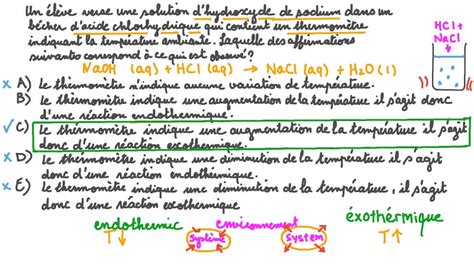 Un élève verse une solution d'hydroxyde de sodium dans un
bécher d'acide chlorhydrique qui contient un thermomètre
indiquant la température ambiante. Laquelle des affirmations
suivantes correspond à ce qui est observé?
NaOH (aq) + HCl (aq) → NaCl (aq) + H₂O (l)
HCl +
NaCl
x A) Le thermomètre n'indique aucune variation de température.
B) Le thermomètre indique une augmentation de la température il s'agit donc
d'une réaction endothermique.
✓ C) Le thermomètre indique une augmentation de la température il s'agit
donc d'une réaction exothermique.
x D) Le thermomètre indique une diminution de la température il s'agit
donc d'une réaction endothermique.
x E) Le thermomètre indique une diminution de la température, il s'agit
donc d'une réaction exothermique
endothermic
T↓
environnement
système
system
éxothérmique
T↑